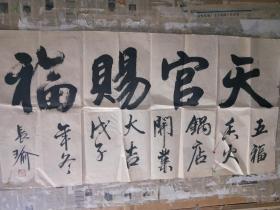 天官賜福
五福
香火
鍋店
開業
大吉
戊子
年冬
長瑜